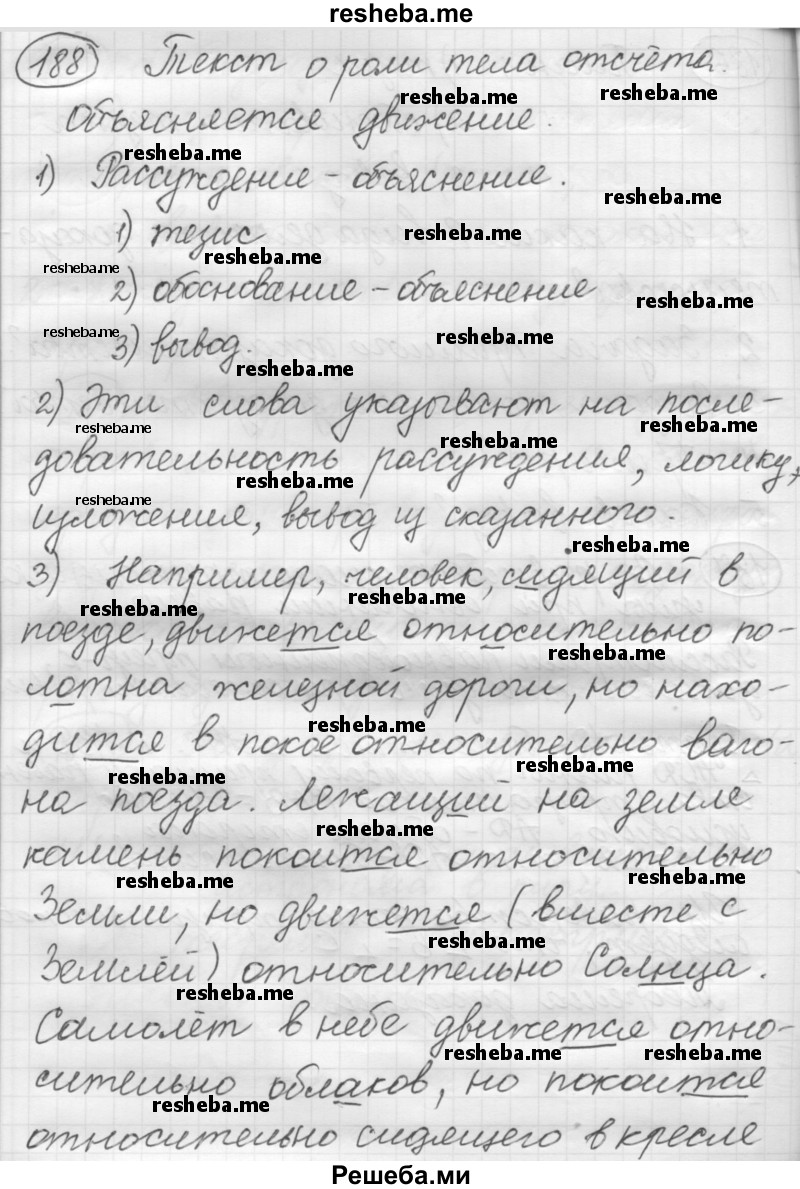 resheba.me
188) Текст о роли тела отсчёта.
resheba.me resheba.me
Объясняется движение.
resheba.me
1) Рассуждение - объяснение.
resheba.me
1) тезис
resheba.me
resheba.me
resheba.me
2) обоснование - объяснение
resheba.me
resheba.me
resheba.me
3) вывод.
resheba.me
2) Эти слова указывают на после-
resheba.me resheba.me
resheba.me
довательность рассуждения, логику,
resheba.me
resheba.me
изложения, вывод из сказанного.
resheba.me
3) Например, человек, сидящий в
resheba.me resheba.me
поезде, движется относительно по-
resheba.me
лотна железной дороги, но нахо-
resheba.me
дится в покое относительно ваго-
resheba.me resheba.me
на поезда. Лежащий на земле
resheba.me
камень покоится относительно
resheba.me resheba.me
Земли, но движется (вместе с
resheba.me
Землёй) относительно Солнца.
resheba.me
Самолёт в небе движется отно-
resheba.me resheba.me
сительно облаков, но покоится
resheba.me
относительно сидящего в кресле
Решеба.ми